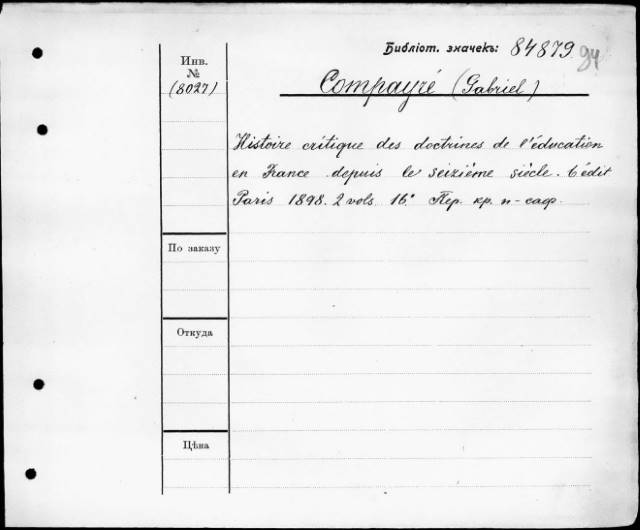 Библіот. значекъ: 84879
Инв.
№
(8027)
Compayré (Gabriel)
Histoire critique des doctrines de l'éducation
en France depuis le seizième siècle. 6 édit
Paris 1898. 2 vols 16° Пер. кр. п-саф.
По заказу
Откуда
Цѣна